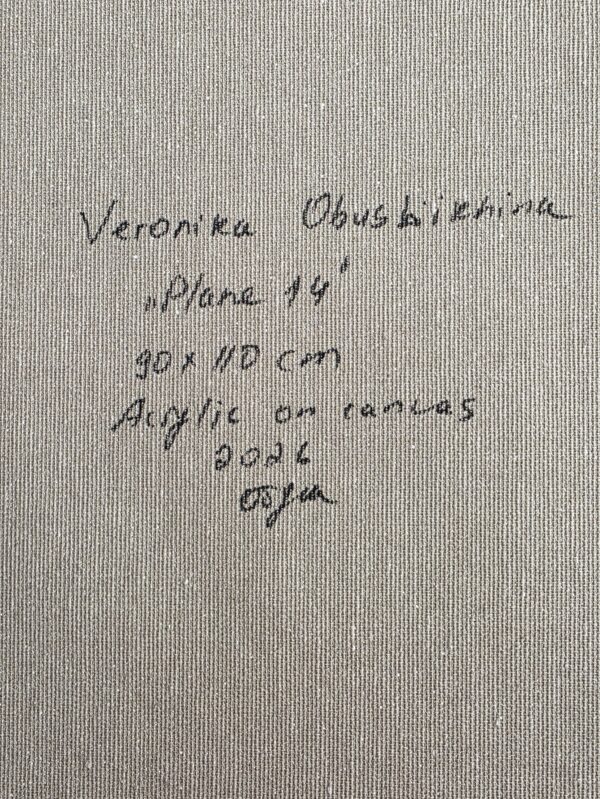 Veronika Obushikhina
„Plane 14'
90 x 110 cm
Acrylic on canvas
2026